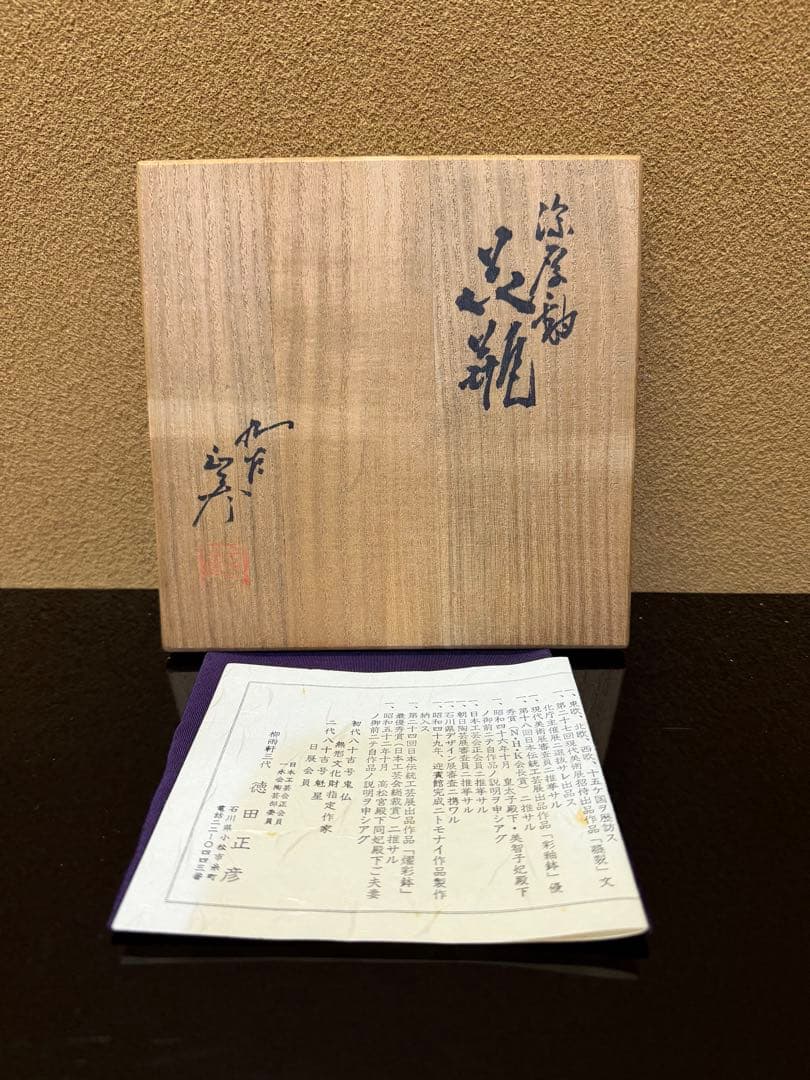 深厚釉
花瓶
九谷
正彦
一、東欧、北欧、西欧、十五ケ国ヲ歴訪ス
一、第二十七回現代美術展招待出品作品「碾裂」文
化庁主催展ニ選抜サレ出品ス
一、現代美術展審査員ニ推挙サル
一、第十八回日本伝統工芸展出品作品「彩釉鉢」優
秀賞(N・H・K会長賞)ニ推サル
一、昭和四十六年十月、皇太子殿下・美智子妃殿下
ノ御前ニテ自作品ノ説明ヲ申シアグ
一、日本工芸会正会員ニ推挙サル
一、朝日陶芸展審査員ニ推挙サル
一、石川県デザイン展審査ニ携ワル
一、昭和四十九年、迎賓館完成ニトモナイ作品製作
納入ス
一、第二十四回日本伝統工芸展出品作品「燿彩鉢」
最優秀賞(日本工芸会総裁賞)ニ推サル
一、昭和五十二年十月、高松宮殿下同妃殿下ご夫妻
ノ御前ニテ自作品ノ説明ヲ申シアグ
初代八十吉号鬼仏
無形文化財指定作家
二代八十吉号魁星
日展会員
柳雨軒三代
日本工芸会正会員
一水会陶芸部委員
徳田正彦
石川県小松市泉町
電話二二-〇四四三番